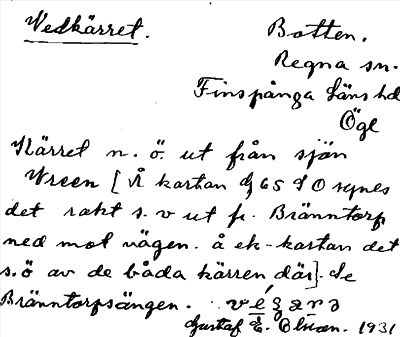 Vedkärret.
Botten.
Regna sn.
Finspånga läns hd
Ögl
Kärret n. ö. ut från sjön
Vreen [på kartan g65 d O synes
det rakt s. v ut fr. Bränntorp
ned mot vägen. å ek-kartan det
s.ö av de båda kärren där]. Se
Bränntorpsängen.
Gustaf E. Olson. 1931